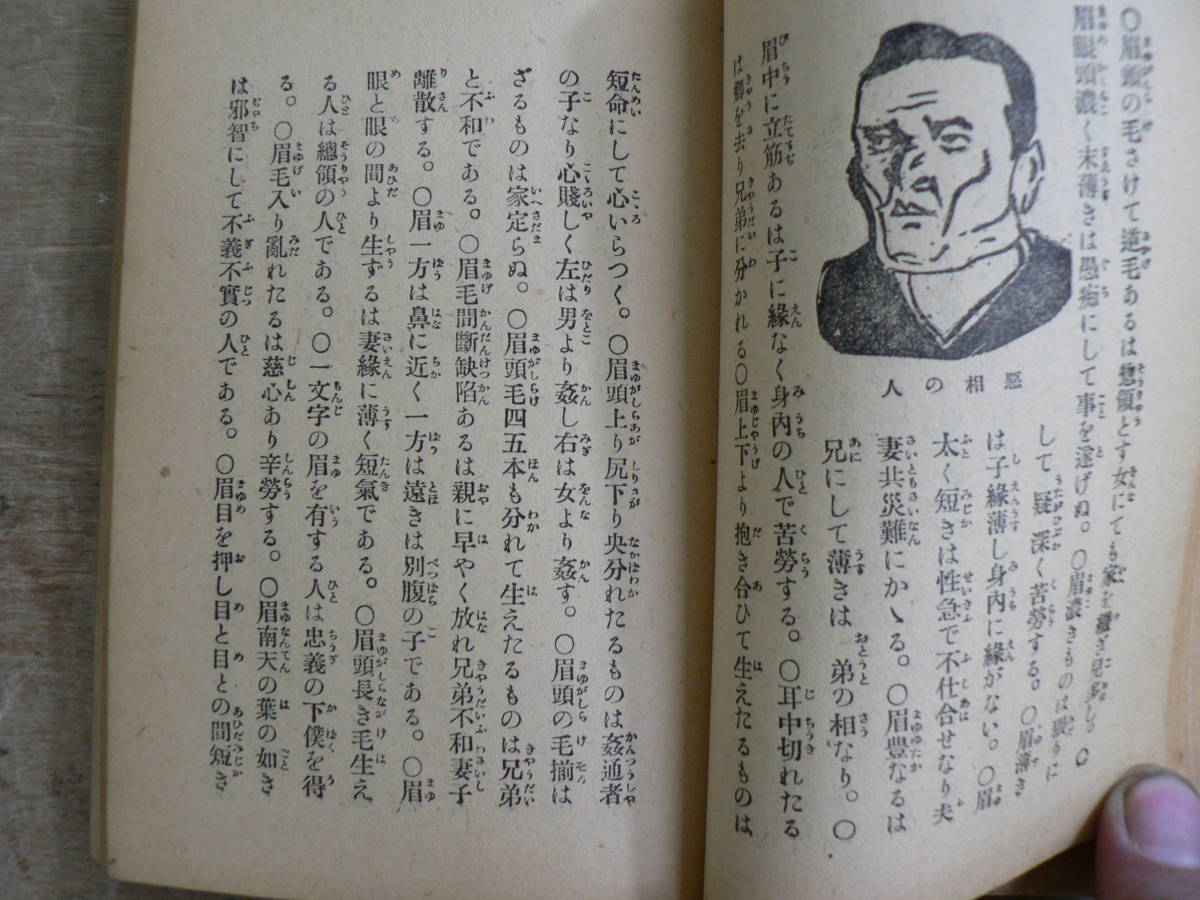 〇眉頭の毛さけて逆毛あるは惣領とす女にても家を繼ぎ兒多し。〇
眉眼頭濃く末薄きは愚痴にして事を遂げぬ。〇眉濃きものは
して疑深く苦勞する。〇眉薄き
は子緣薄し身內に緣がない。〇眉
太く短きは性急で不仕合せなり夫
妻共災難にかゝる。〇眉豊なるは
兄にして薄きは弟の相なり。〇
惡相の人
眉中に立筋あるは子に緣なく身內の人で苦勞する。〇耳中切れたる
は鄕を去り兄弟に分かれる〇眉上下より抱き合ひて生えたるものは
短命にして心いらつく。〇眉頭上り尻下り央分れたるものは姦通者
の子なり心賤しく左は男より姦し右は女より姦す。〇眉頭の毛揃は
ざるものは家定らぬ。〇眉頭毛四五本も分れて生えたるものは兄弟
と不和である。〇眉毛間斷缺陷あるは親に早やく放れ兄弟不和妻子
離散する。〇眉一方は鼻に近く一方は遠きは別腹の子である。〇眉
眼と眼の間より生ずるは妻緣に薄く短氣である。〇眉頭長き毛生え
る人は總領の人である。〇一文字の眉を有する人は忠義の下僕を得
る。〇眉毛入り亂れたるは慈心あり辛勞する。〇眉南天の葉の如き
は邪智にして不義不實の人である。〇眉目を押し目と目との間短き